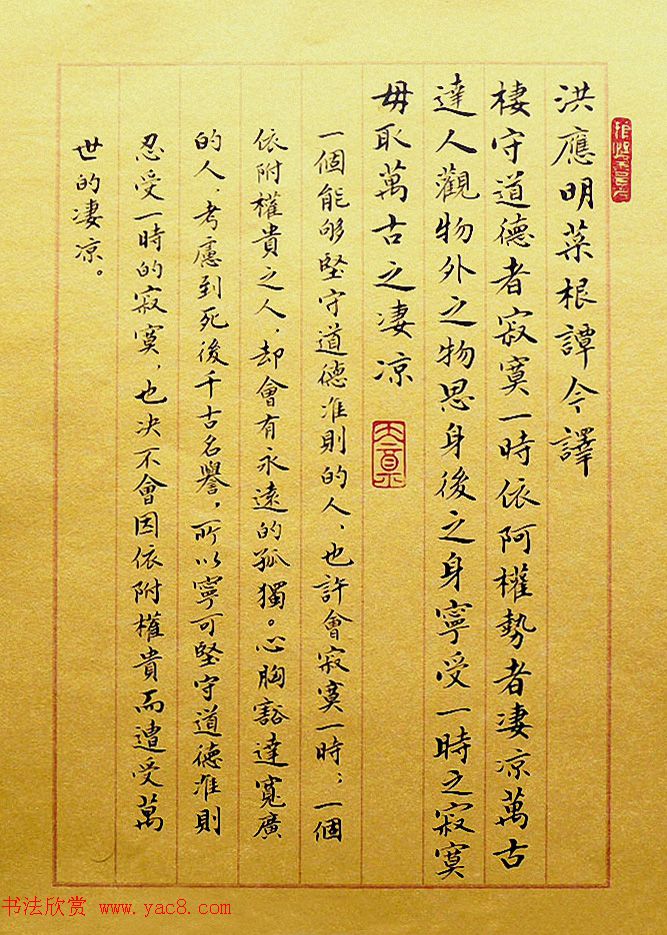 洪應明菜根譚今譯
棲守道德者寂寞一時依阿權勢者凄凉萬古
達人觀物外之物思身後之身寧受一時之寂寞
毋取萬古之凄凉
一個能够堅守道德准則的人、也許會寂寞一時；一個
依附權貴之人、却會有永遠的孤獨。心胸豁達寬廣
的人、考慮到死後千古名譽，所以寧可堅守道德准則
忍受一時的寂寞，也决不會因依附權貴而遭受萬
世的凄凉。
书法欣赏 www.yac8.com